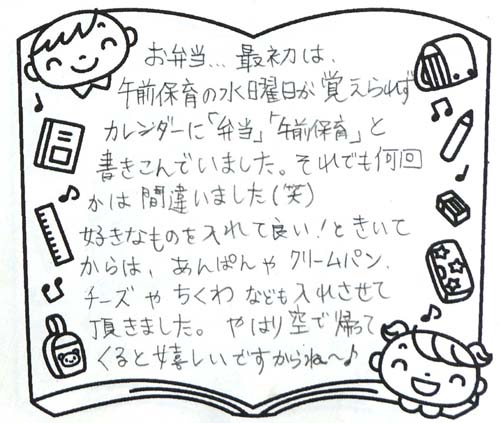 お弁当… 最初は、
午前保育の水曜日が覚えられず
カレンダーに「弁当」「午前保育」と
書きこんでいました。それでも何回
かは間違いました(笑)
好きなものを入れて良い!ときいて
からは、あんぱんやクリームパン、
チーズやちくわなども入れさせて
頂きました。やはり空で帰って
くると嬉しいですからね〜♪